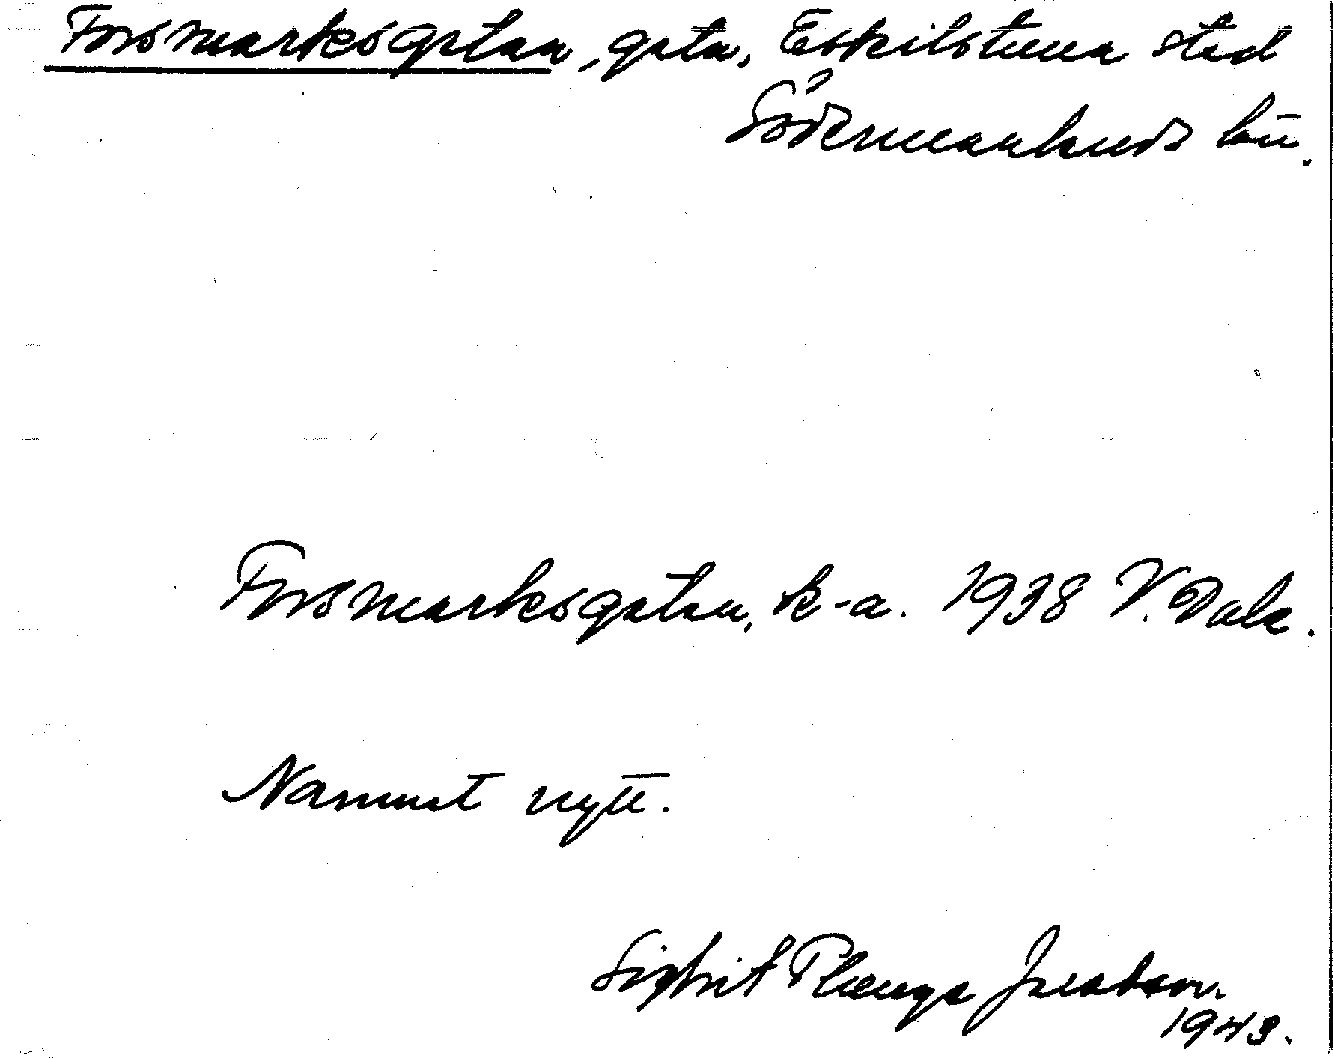 Forsmarksgatan, gata, Eskilstuna stad
Södermanlands län.
Forsmarksgatan, k-a. 1938 V. Dala.
Namnet nytt.
Sigbrit Plænge Jacobson.
1943.